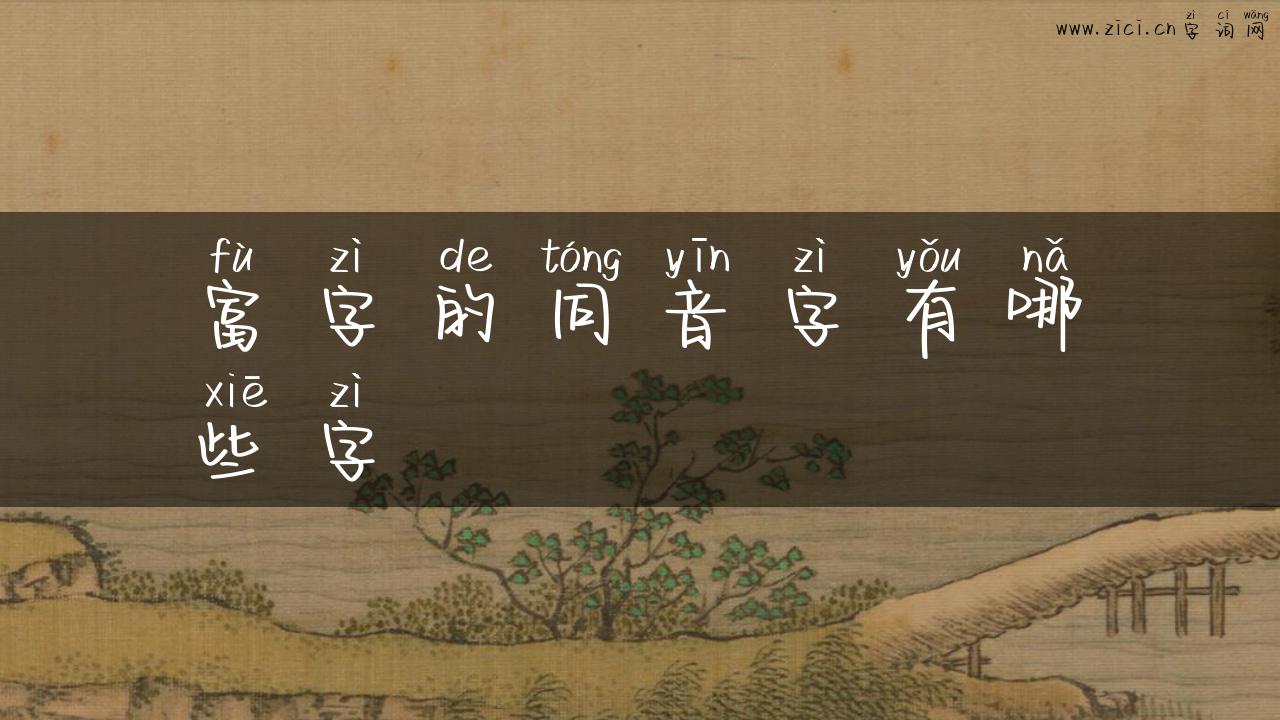 zì cí wǎng
www.zici.cn 字 词 网
fù zì de tóng yīn zì yǒu nǎ
富 字 的 同 音 字 有 哪
xiē zì
些 字